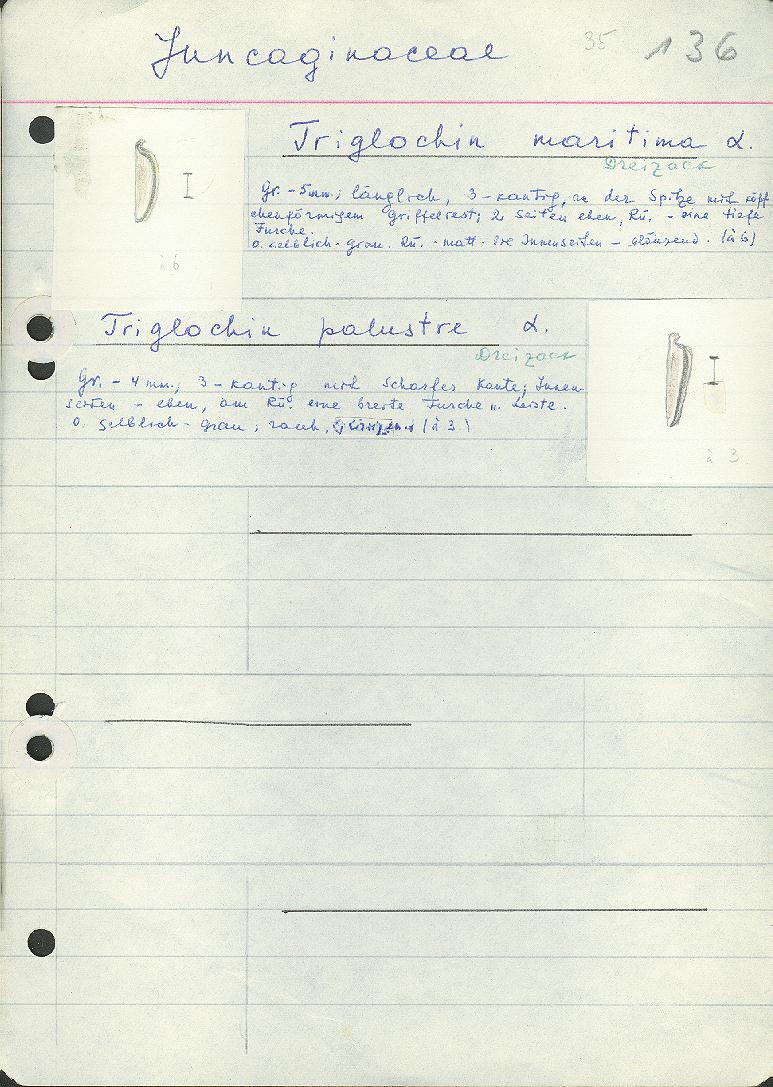 Juncaginaceae 35 136
Triglochin maritima L.
Dreizack
Gr. - 5 mm.; länglich, 3-kantig, an der Spitze mit köpf-
chenförmigem Griffelrest; 2 Seiten eben, Rü. - eine tiefe
Furche.
O. gelblich-grau. Rü. - matt. Innenseiten - glänzend. (à 6)
à 6
Triglochin palustre L.
Dreizack
Gr. - 4 mm.; 3-kantig mit scharfer Kante; Innen-
seiten - eben, am Rü. eine breite Furche u. Leiste.
O. gelblich-grau; rauh, (à 3)
à 3